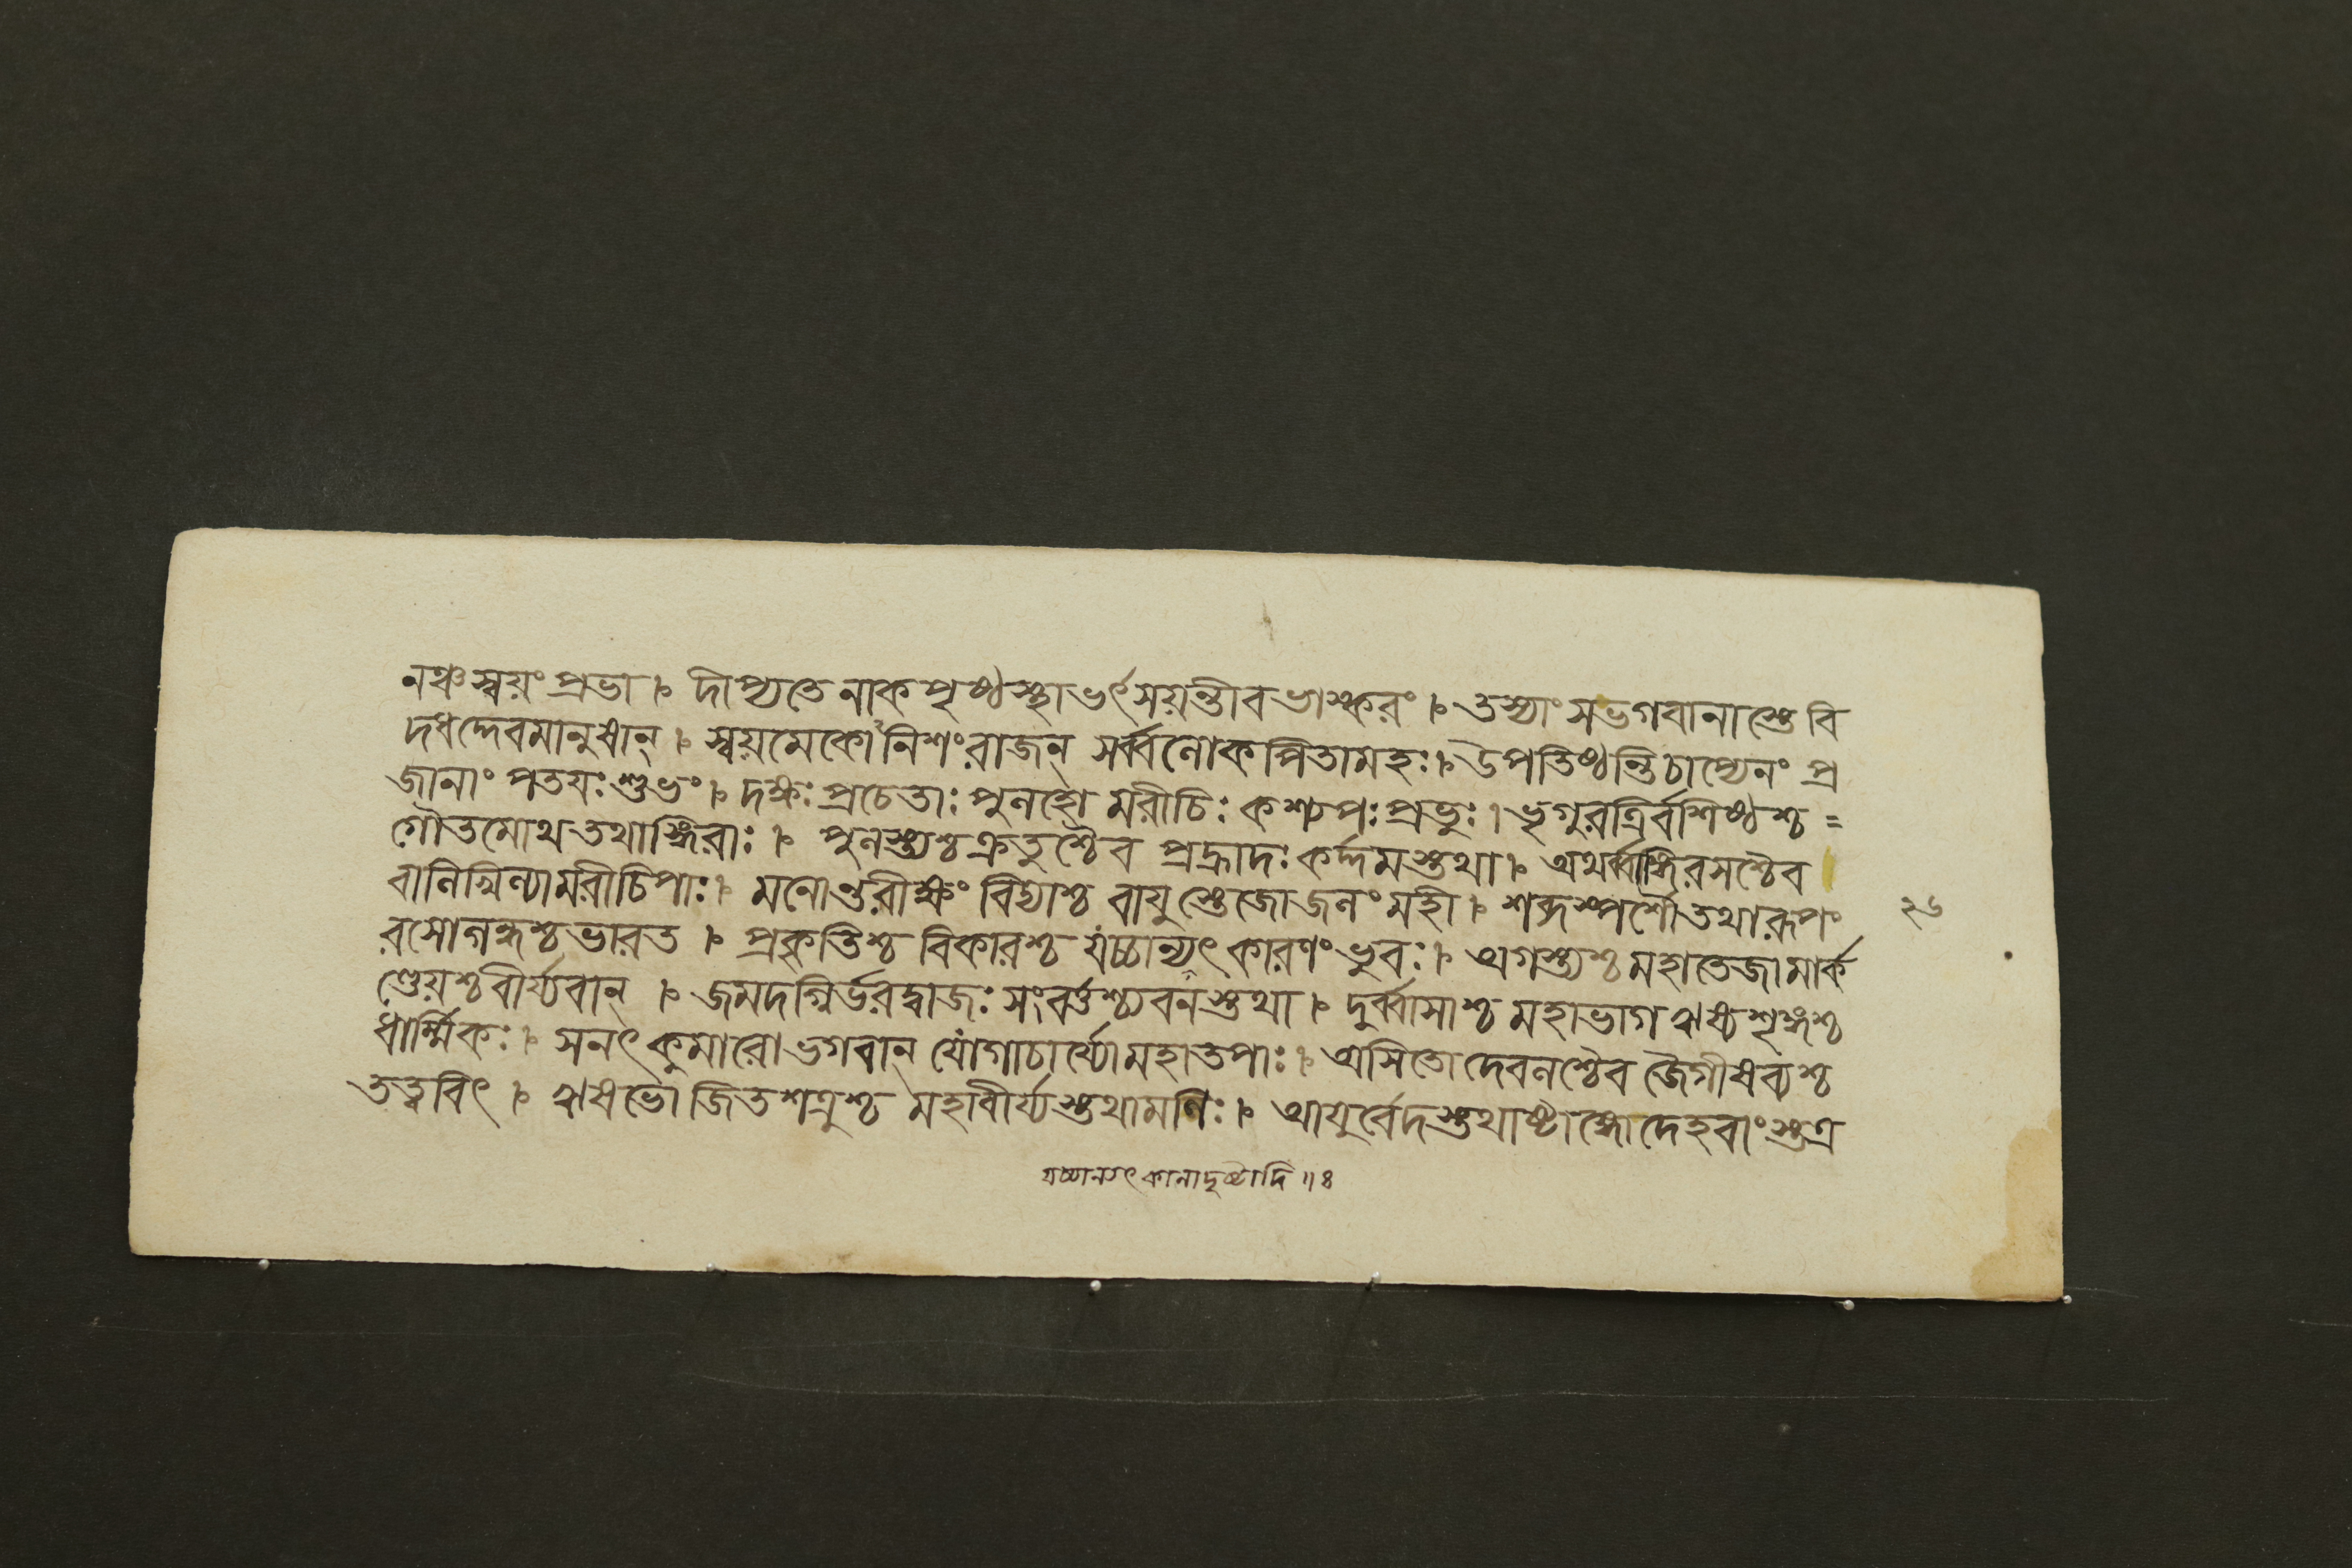 নঞ্চ স্বয়ং প্রভা । দীপ্যতে নাকপৃষ্ঠস্থা ভর্ৎসয়ন্তীব ভাস্করং । তস্যাং স ভগবানাস্তে বি
দধদ্দেবমানুষান্ । স্বয়মেকোঽনিশং রাজন্ সর্ব্বলোকপিতামহঃ । উপতিষ্ঠন্তি চাপ্যেনং প্র
জানাং পতয়ঃ শুভং । দক্ষঃ প্রচেতাঃ পুলহো মরীচিঃ কশ্যপঃ প্রভুঃ । ভৃগুরত্রির্বশিষ্ঠশ্চ =
গৌতমোথ তথাঙ্গিরাঃ । পুলস্ত্যশ্চ ক্রতুশ্চৈব প্রহ্রাদঃ কর্দ্দমস্তথা । অথর্ব্বাঙ্গিরসশ্চৈব
বালিখিল্যা মরীচিপাঃ । মনোন্তরীক্ষং বিদ্যাশ্চ বায়ুস্তেজো জলং মহী । শব্দস্পর্শৌ তথা রূপং
২৬
রসো গন্ধশ্চ ভারত । প্রকৃতিশ্চ বিকারশ্চ যচ্চান্যৎ কারণং ভুবঃ । অগস্ত্যশ্চ মহাতেজা মার্ক
ণ্ডেয়শ্চ বীর্য্যবান্ । জমদগ্নির্ভরদ্বাজঃ সংবর্ত্তশ্চ্যবনস্তথা । দুর্ব্বাসাশ্চ মহাভাগ ঋষ্যশৃঙ্গশ্চ
ধার্ম্মিকঃ । সনৎকুমারো ভগবান্ যোগাচার্য্যো মহাতপাঃ । অসিতো দেবলশ্চৈব জৈগীষব্যশ্চ
তত্ত্ববিৎ । ঋষভো জিতশত্রুশ্চ মহাবীর্য্যস্তথা মণিঃ । আয়ুর্বেদস্তথাষ্টাঙ্গো দেহবাংস্তত্র
যচ্চান্যৎ কালাদৃষ্টাদি ॥ ঃ